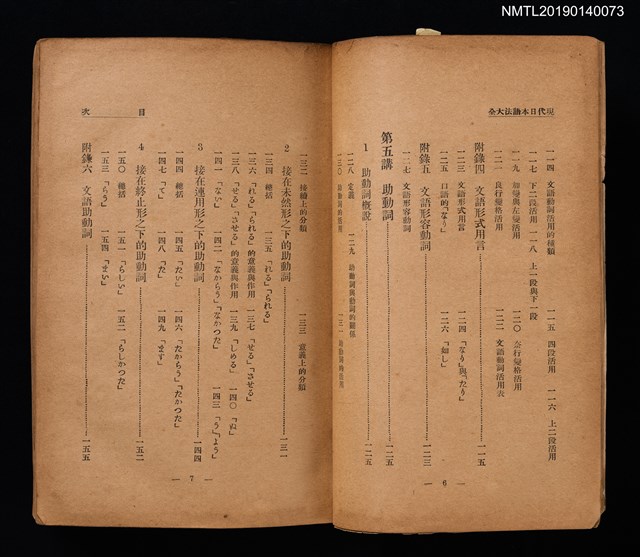 NMTL20190140073
現代日本語法大全
一一四 文語動詞活用的種類 一一五 四段活用 一一六 上二段活用
一一七 下二段活用 一一八 上一段與下一段
一一九 加變與左變活用 一二〇 奈行變格活用
一二一 良行變格活用 一二二 文語動詞活用表
附錄四 文語形式用言 一一五
一二三 文語形式用言 一二四 「なり」與「たり」
一二五 口語的「なり」 一二六 「如し」
附錄五 文語形容動詞 一二三
一二七 文語形容動詞
第五講 助動詞 一二五
1 助動詞概說 一二五
一二八 定義 一二九 助動詞與動詞的關係
一三〇 助動詞的應用 一三一 助動詞的活用
— 6 —
目 次
一三二 接續上的分類 一三三 意義上的分類
2 接在未然形之下的助動詞 一三一
一三四 總括 一三五 「れる」「られる」
一三六 「れる」「られる」的意義與作用 一三七 「せる」「させる」
一三八 「せる」「させる」的意義與作用 一三九 「しめる」 一四〇 「ぬ」
一四一 「ない」 一四二 「なからう」「なかつた」 一四三 「う」「よう」
3 接在連用形之下的助動詞 一四四
一四四 總括 一四五 「たい」 一四六 「たからう」「たかつた」
一四七 「て」 一四八 「た」 一四九 「ます」
4 接在終止形之下的助動詞 一五二
一五〇 總括 一五一 「らしい」 一五二 「らしかつた」
一五三 「らう」 一五四 「まい」
附錄六 文語助動詞 一五五
— 7 —